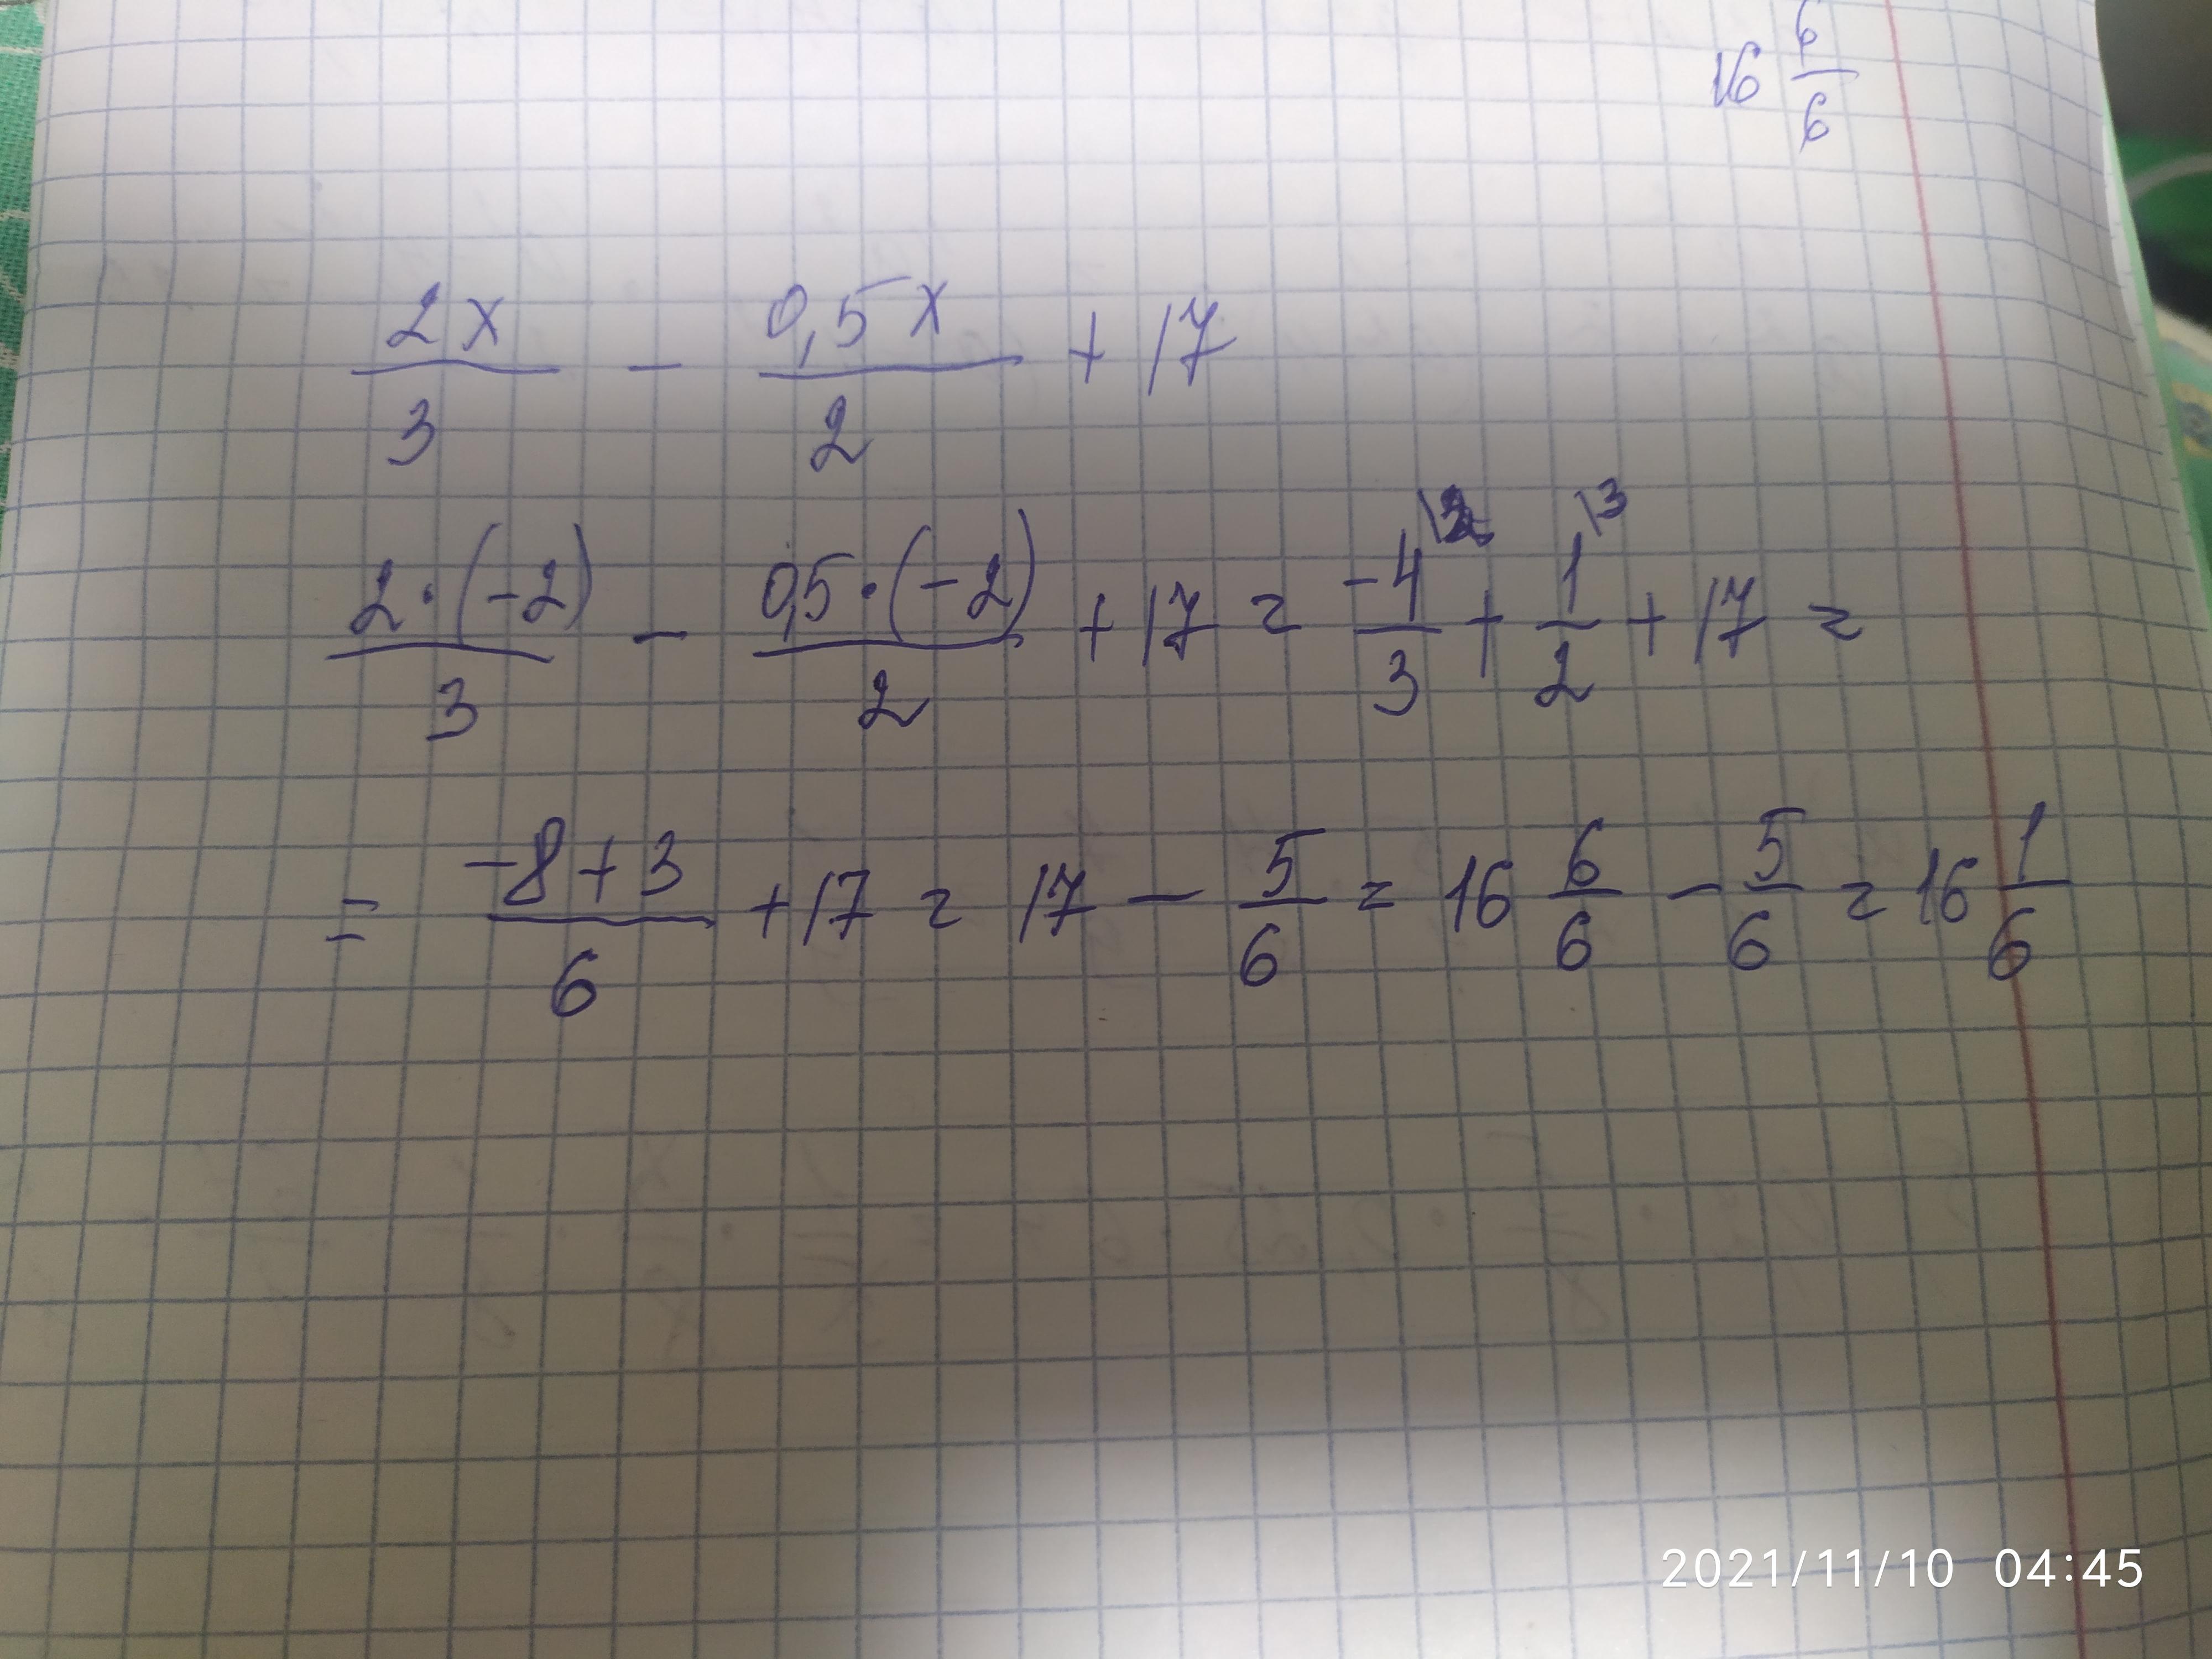 16 6/6
2x/3 - 0,5x/2 + 17
2·(-2)/3 - 0,5·(-2)/2 + 17 = -4\2/3 + 1\3/2 + 17 =
= -8+3/6 + 17 = 17 - 5/6 = 16 6/6 - 5/6 = 16 1/6
2021/11/10 04:45